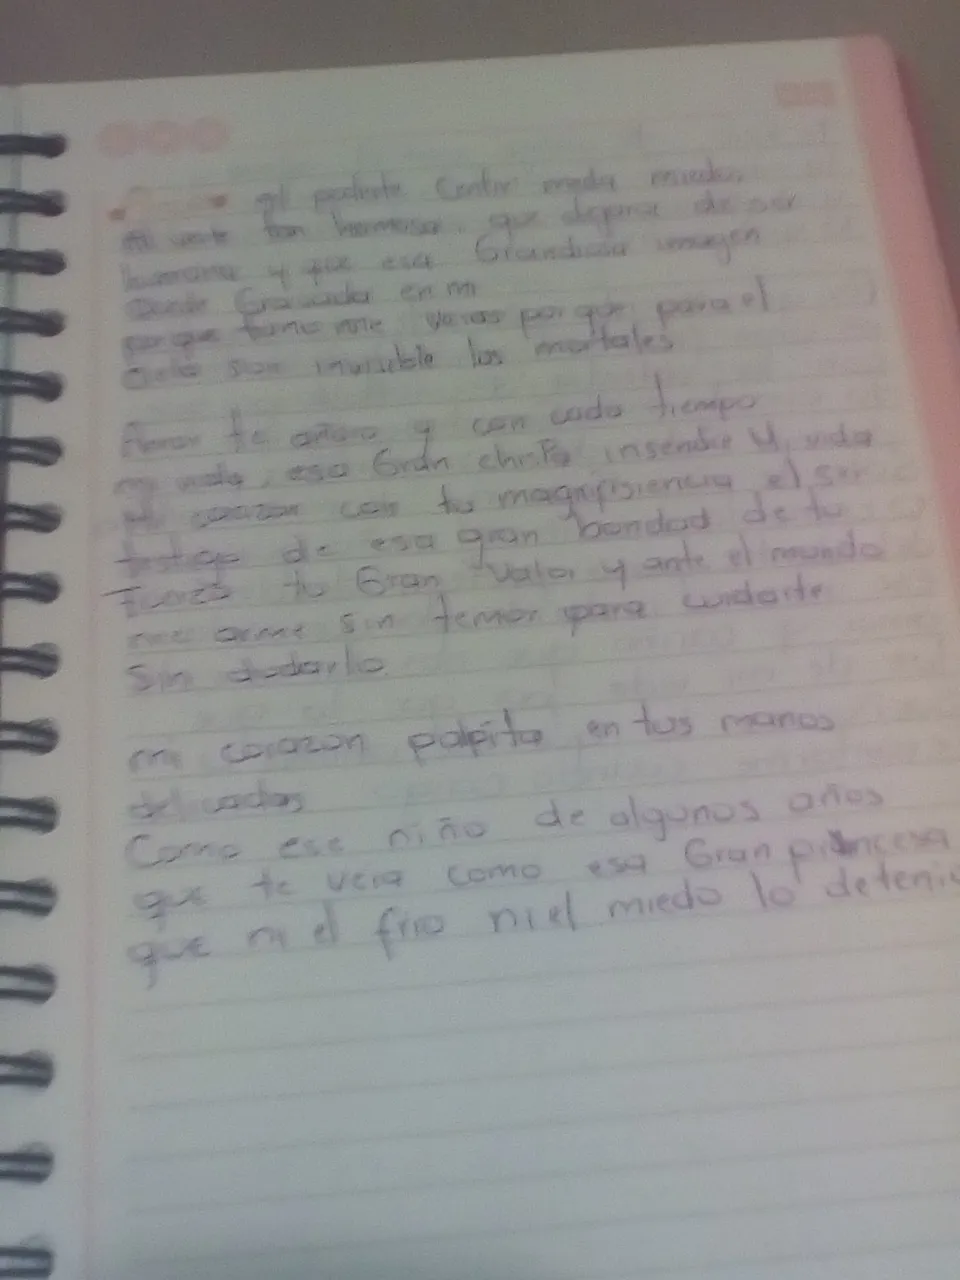 al poderte Contar miedo
al verte tan hermosa que dejara de ser
humana y que esa Grandiosa imagen
Quede Gravada en mi
porque para el
cielo son invisible los mortales
Amor te añoro y con cada tiempo
mi vida, esa Gran chispa insendie Mi vida
Mi corazon con tu magnifisiencia el ser
testigo de esa gran bondad de tu
tu Gran Valor y ante el mundo
me arme sin temor para cuidarte
Sin dudarlo
mi corazon palpita en tus manos
delicadas
Como ese niño de algunos años
que te veia como esa Gran princesa
que ni el frio ni el miedo lo detenia